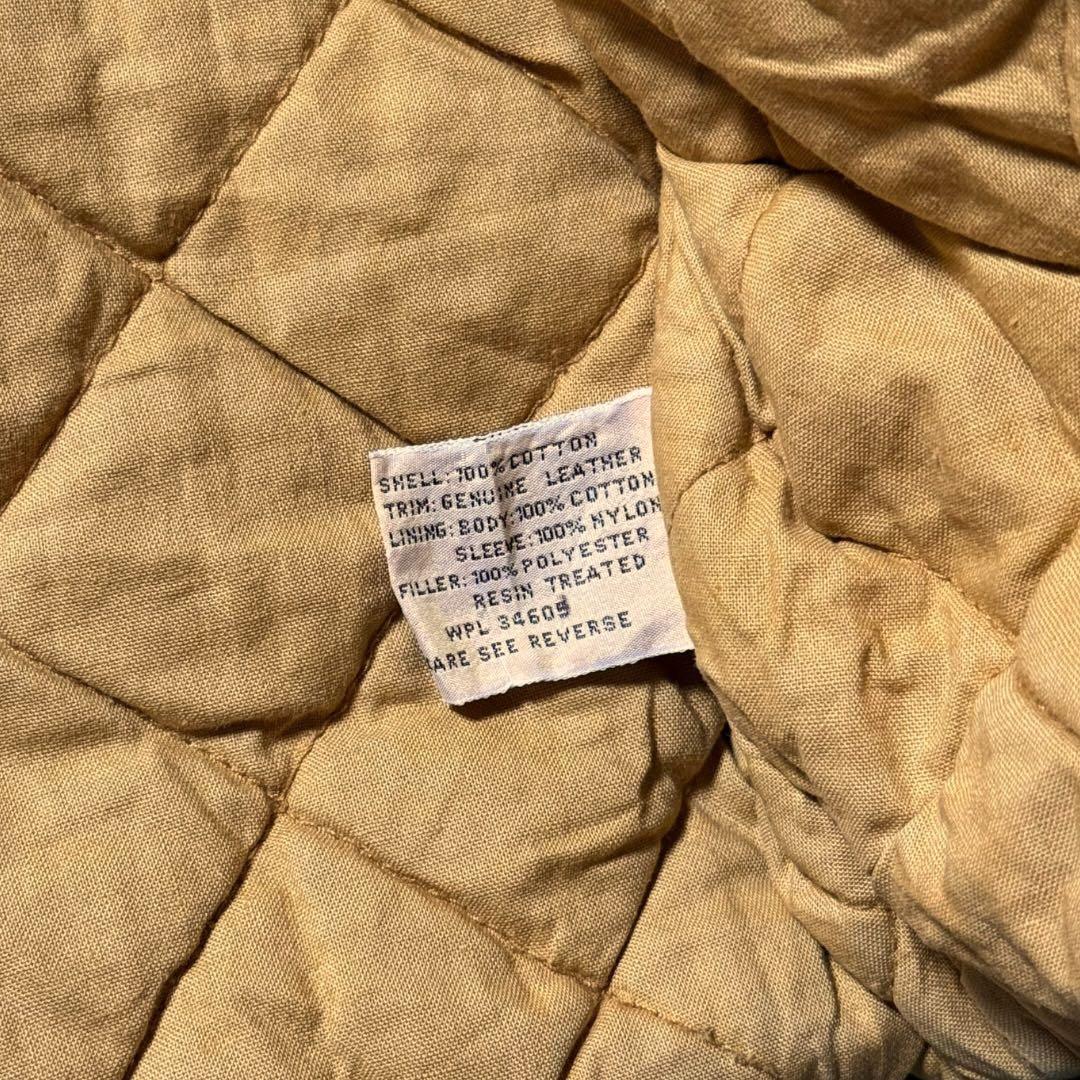 SHELL:100% COTTON
TRIM:GENUINE LEATHER
LINING:BODY:100% COTTON
SLEEVE:100% NYLON
FILLER:100% POLYESTER
RESIN TREATED
WPL 34605
CARE SEE REVERSE